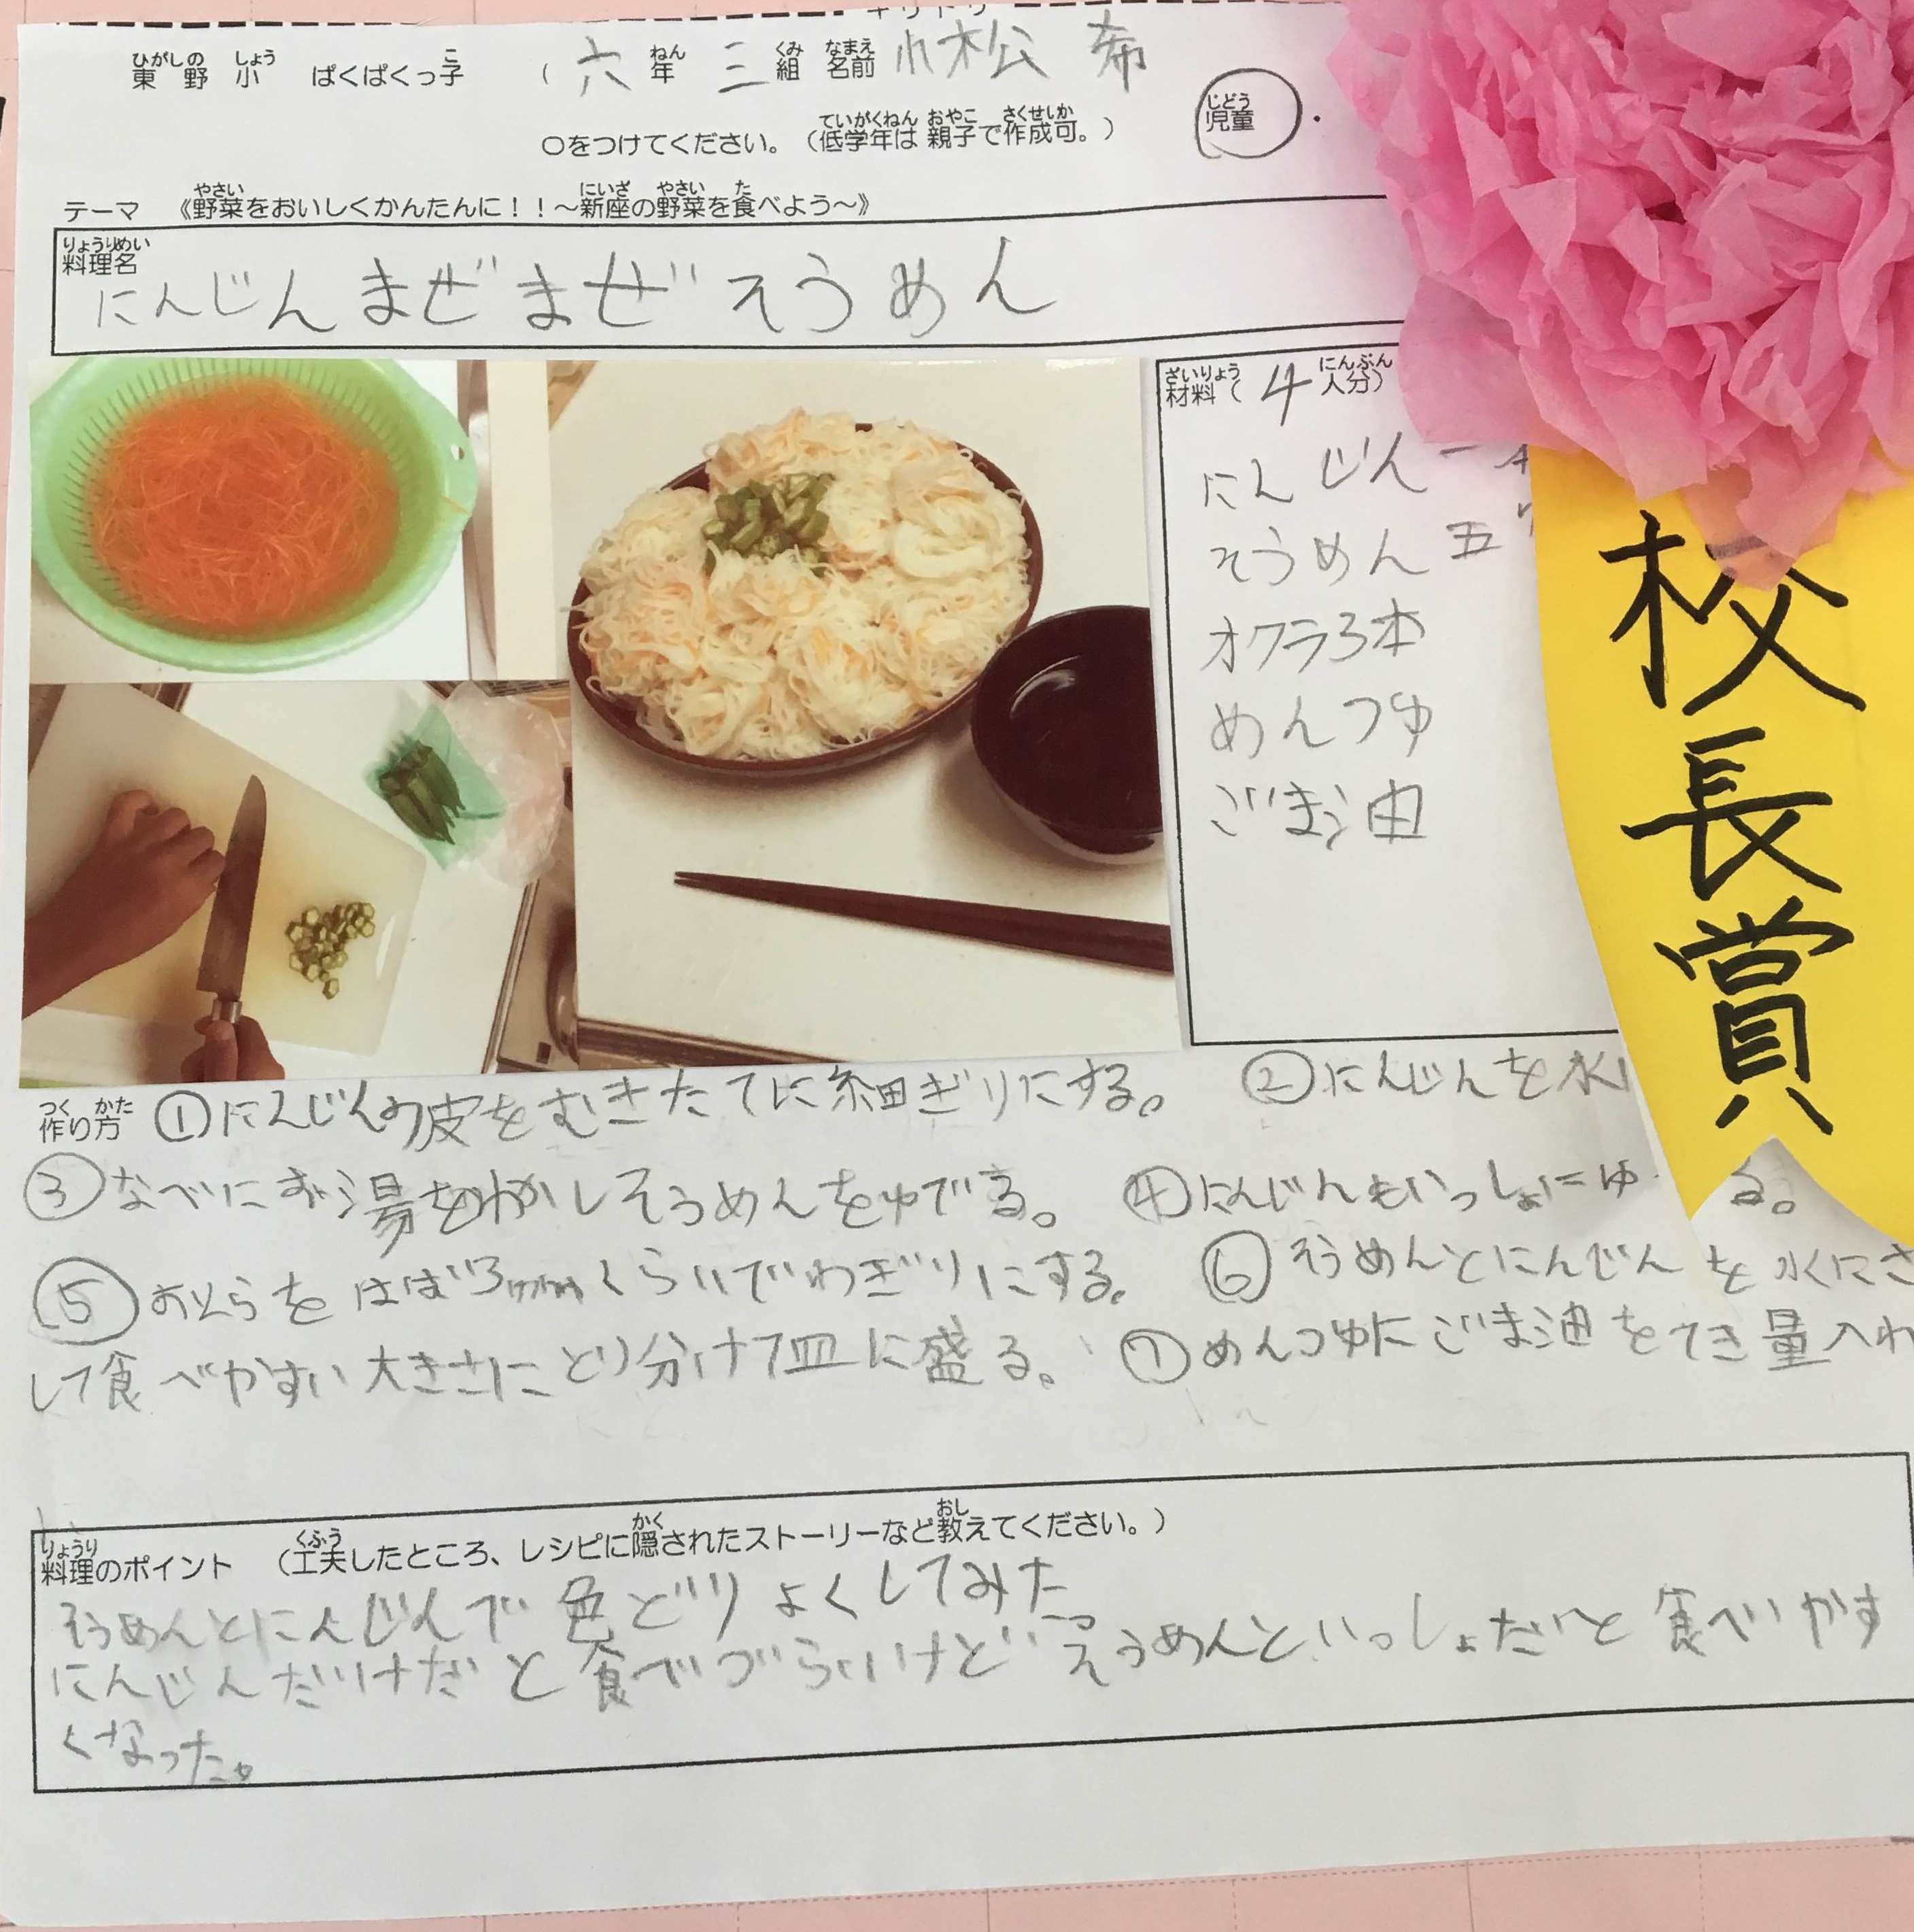 キリトリ
東野小 ぱくぱくっ子 ( 六年 三組 名前 小松 希
○をつけてください。(低学年は 親子で作成可。) 児童 ・
テーマ 《野菜をおいしくかんたんに!!~新座の野菜を食べよう~》
料理名
にんじんまぜまぜそうめん
材料( 4人分)
にんじん一本
そうめん 五
オクラ3本
めんつゆ
ごま油
校長賞
作り方 ①にんじんの皮をむきたてに細ぎりにする。 ②にんじんを水
③なべにお湯をわかしそうめんをゆでる。 ④にんじんもいっしょにゆ る。
⑤おくらをはば3mmくらいでわぎりにする。 ⑥そうめんとにんじんを水にさ
して食べやすい大きさにとり分けて皿に盛る。 ⑦めんつゆにごま油をてき量入れ
料理のポイント (工夫したところ、レシピに隠されたストーリーなど教えてください。)
そうめんとにんじんで色どりよくしてみた
にんじんだけだと食べづらいけどそうめんといっしょだと食べやす
くなった。